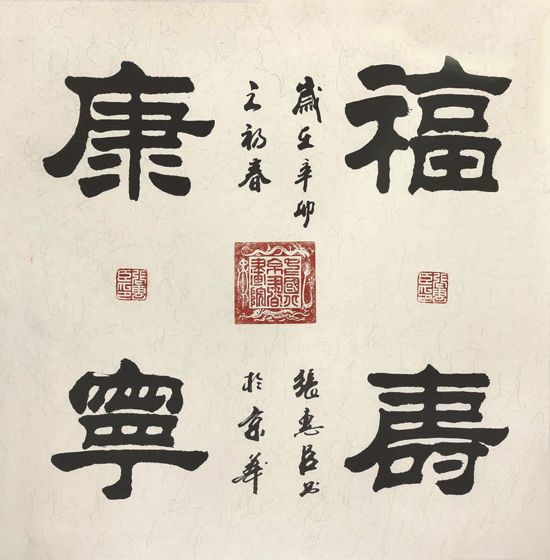 福壽
康寧
歲在辛卯
之初春
張惠臣书
於京華
張惠臣印
張惠臣印